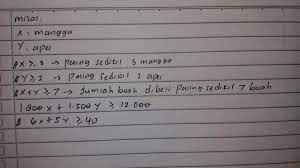 misal.
X = mangga
Y = apel
X ≥ 3 → paling sedikit 3 mangga
Y ≥ 2 → paling sedikit 2 apel
X + Y ≥ 7 → Jumlah buah dibeli paling sedikit 7 buah
1.800 x + 1.500 y ≥ 12.000
6x + 5y ≥ 40